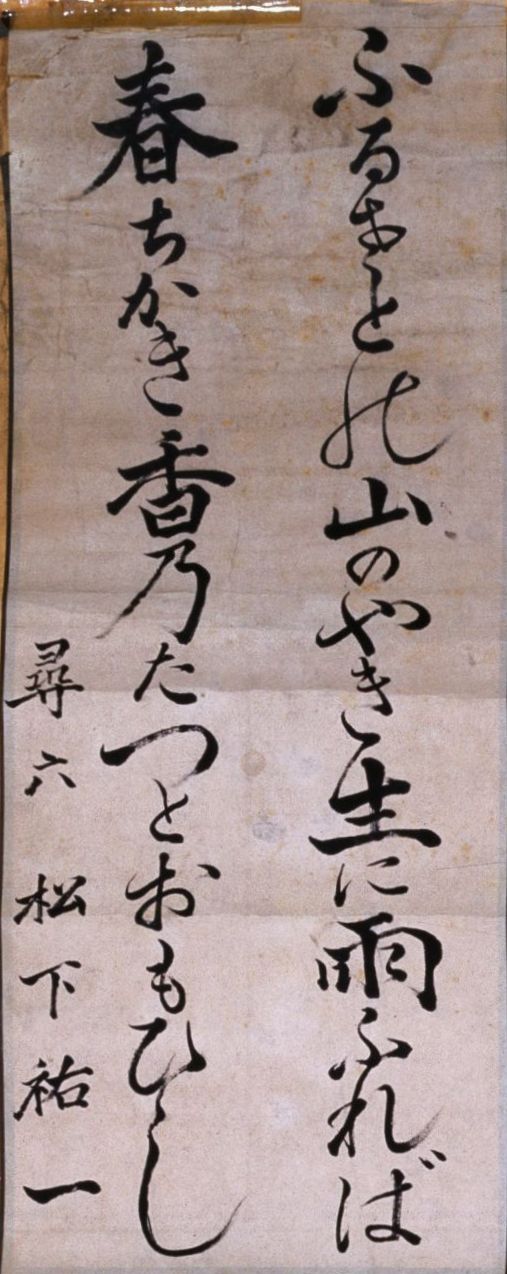 ふるさと能山のやき生に雨ふれば
春ちかき香乃たつとおもひし
尋六 松下祐一